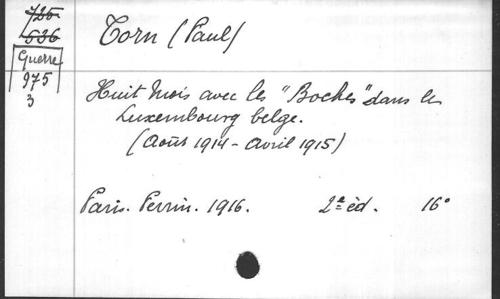 725
536
Guerre
975
3
Torn (Paul)
Huit Mois avec les "Boches" dans le
Luxembourg belge.
(Août 1914 - Avril 1915)
Paris. Perrin. 1916. 2e éd. 16°